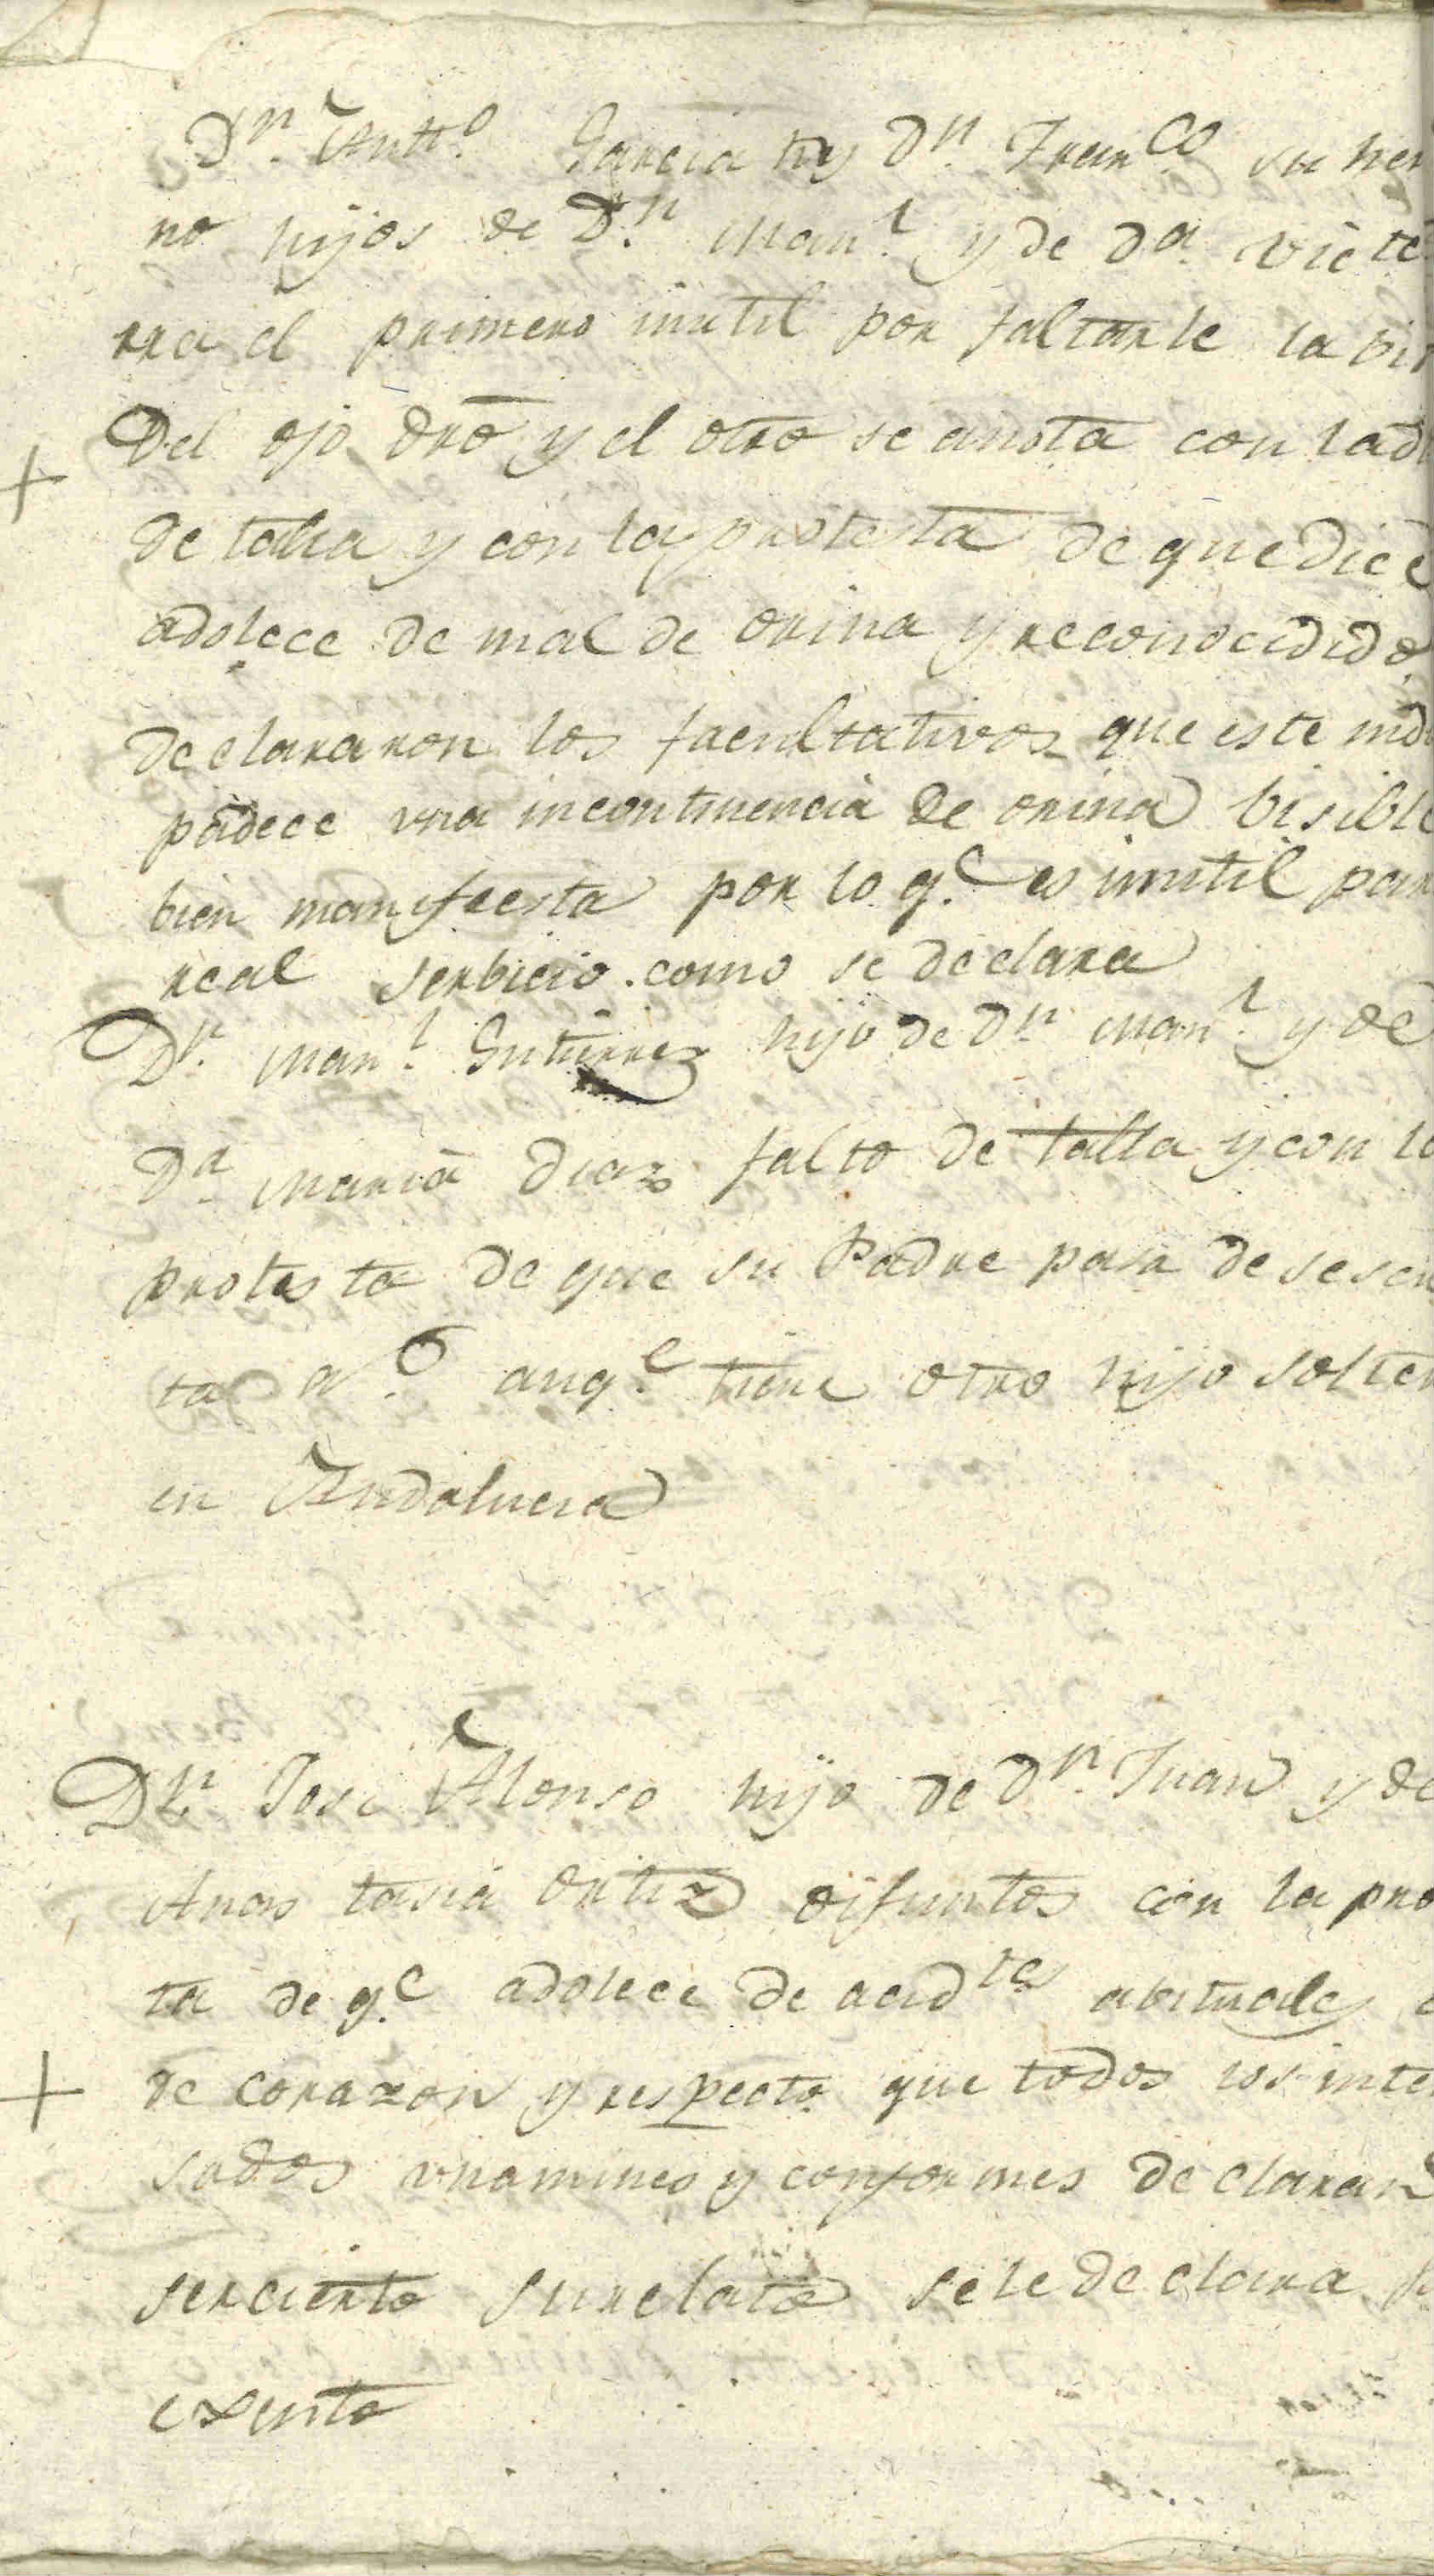 Dn. Anto. Garcia y Dn. Franco su her
no hijos de Dn. Manl. y de Da. Victe
rra el primero inutil por faltarle la bis
Del ojo dro y el otro se anota con lad
de talla y con la protesta de que dice
adolece de mal de orina y reconocidido
declararon los facultativos que este indi
padece una incontinencia de orina bisible
bien manifiesta por lo qe. es inutil par
real serbicio. como se declara
Dn. Manl. Gutierrez hijo de Dn. Manl. y de
Da. Maria Diaz falto de talla y con la
protesta de que su Padre pasa de sesen
ta as. auqe. tiene otro hijo solter
en Andalucia
Dn. Jose Alonso hijo de Dn. Juan y de
Anastasia Ortiz difuntos con la pro
ta de qe. adolece de acidtes abituales
+ de corazon y respecto que todos los inte
sados unamines y conformes declaran
ser cierto su relato se le declara
exento